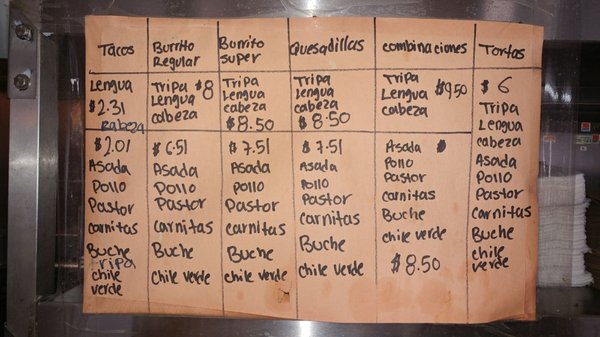 Tacos
Lengua
$2.31
Rabeza
$2.01
Asada
Pollo
Pastor
carnitas
Buche
Tripa
chile
verde
Burrito
Regular
Tripa $8
Lengua
cabeza
$6.51
Asada
Pollo
Pastor
carnitas
Buche
chile verde
Burrito
super
Tripa
Lengua
cabeza
$8.50
$7.51
Asada
Pollo
Pastor
carnitas
Buche
chile verde
Quesadillas
Tripa
Lengua
cabeza
$8.50
$7.51
Asada
Pollo
Pastor
carnitas
Buche
chile verde
combinaciones
Tripa $9.50
Lengua
cabeza
Asada
Pollo
Pastor
carnitas
Buche
chile verde
$8.50
Tortas
$6
Tripa
Lengua
cabeza
Asada
Pollo
Pastor
carnitas
Buche
chile
verde